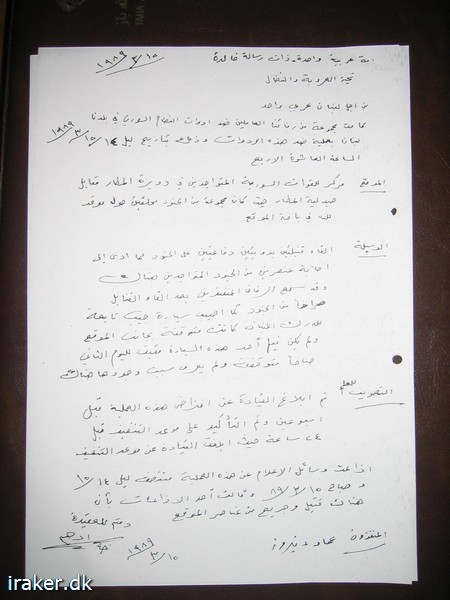 ١٩٨٩/٣/١٥
امة عربية واحدة ذات رسالة خالدة
تحية العروبة والنضال
من اجل لبنان عربي واحد
قامت مجموعة من رفاقنا العاملين ضد ادوات النظام السوري في بلدنا
لبنان بعملية ضد هذه الادوات وذلك بتاريخ ليل ١٤/١٥/٣/١٩٨٩
الساعة العاشرة الا ربع
الموقع مركز للقوات السورية المتواجدين في دويرة المطار مقابل
صيدلية المطار حيث كان مجموعة من الجنود متحلقين حول موقد
للنار في باحة الموقع
الوسيلة القاء قنبلتين يدويتين دفاعيتين على الجنود مما ادى الى
اصابة عنصرين من الجنود المتواجدين هناك
وقد سمع الرفاق المنفذين بعد القاء القنابل
صراخاً من الجنود كما اصيبت سيارة جيب تابعة
للدرك اللبناني كانت متوقفة بجانب الموقع
ولم يكن فيها احد هذه السيارة بقيت لليوم الثاني
صباحاً متوقفة ولم يعرف سبب وجودها هناك
التصويب للعلم تم ابلاغ القيادة عن افتراض هذه العملية قبل
اسبوعين وتم التأكيد على موعد التنفيذ قبل
٢٤ ساعة حيث ابلغت القيادة عن موعد التنفيذ
اذاعت وسائل الاعلام عن هذه العملية منتصف ليل ١٤/١٥
و صباح ١٥/٣/٨٩ وقالت أحد الاذاعات بأن
هناك قتيل وجريح من عناصر الموقع
ودمتم للعقيدة
المنفذون عماد و نيروز
ادهم
١٩٨٩/٣/١٥
iraker.dk